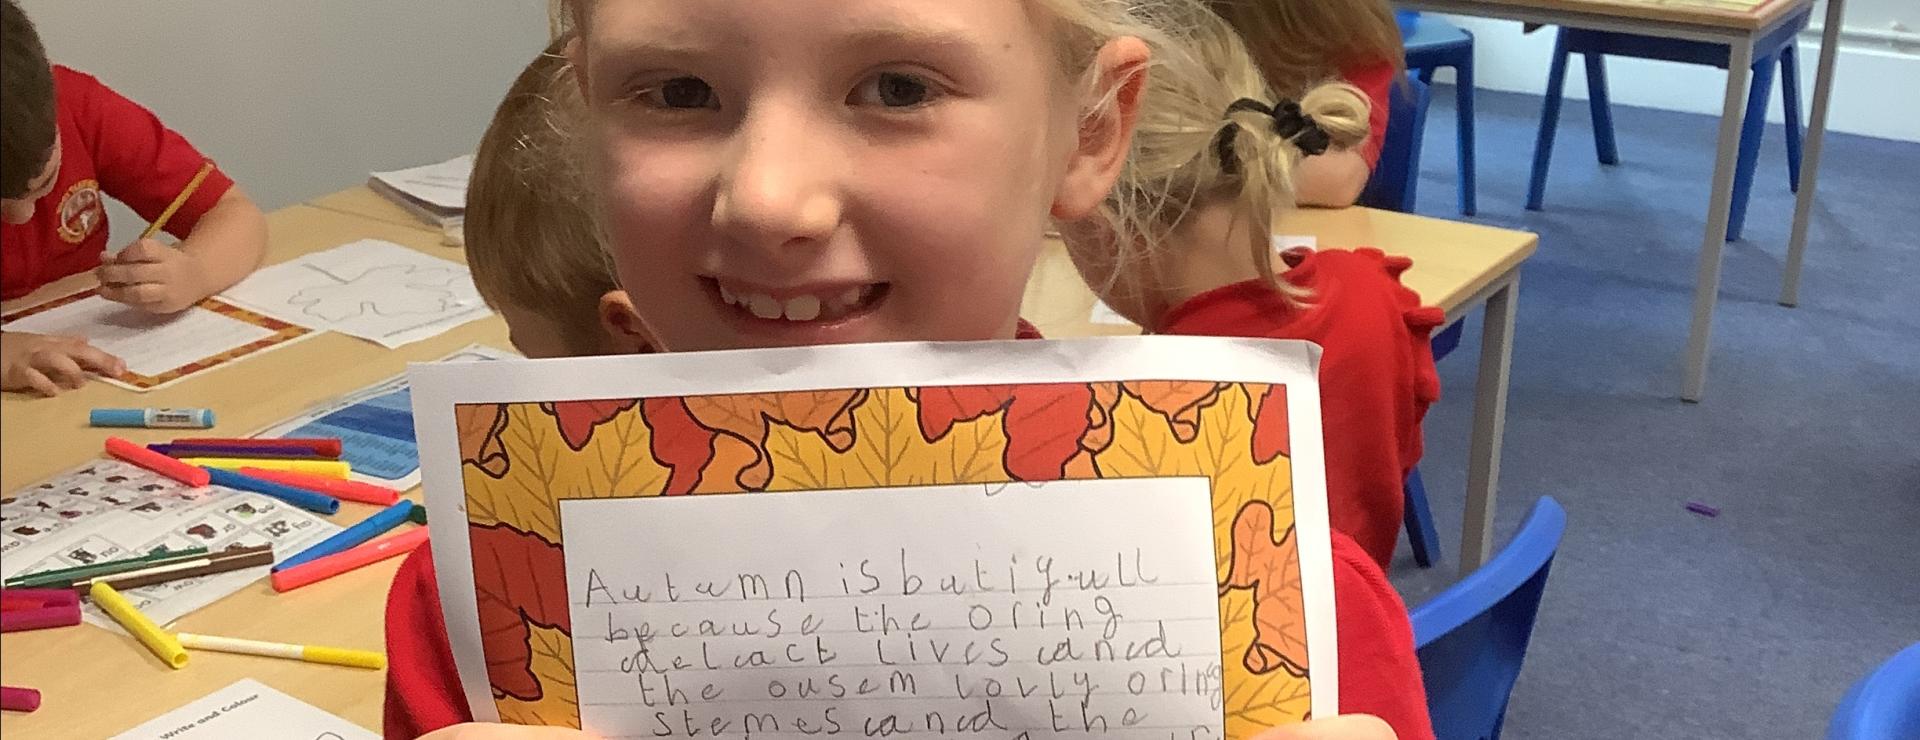 Autumn is butiyull
because the oring
delcact livcs and
the ousem lovly oring
stemes and the
Write and Colour